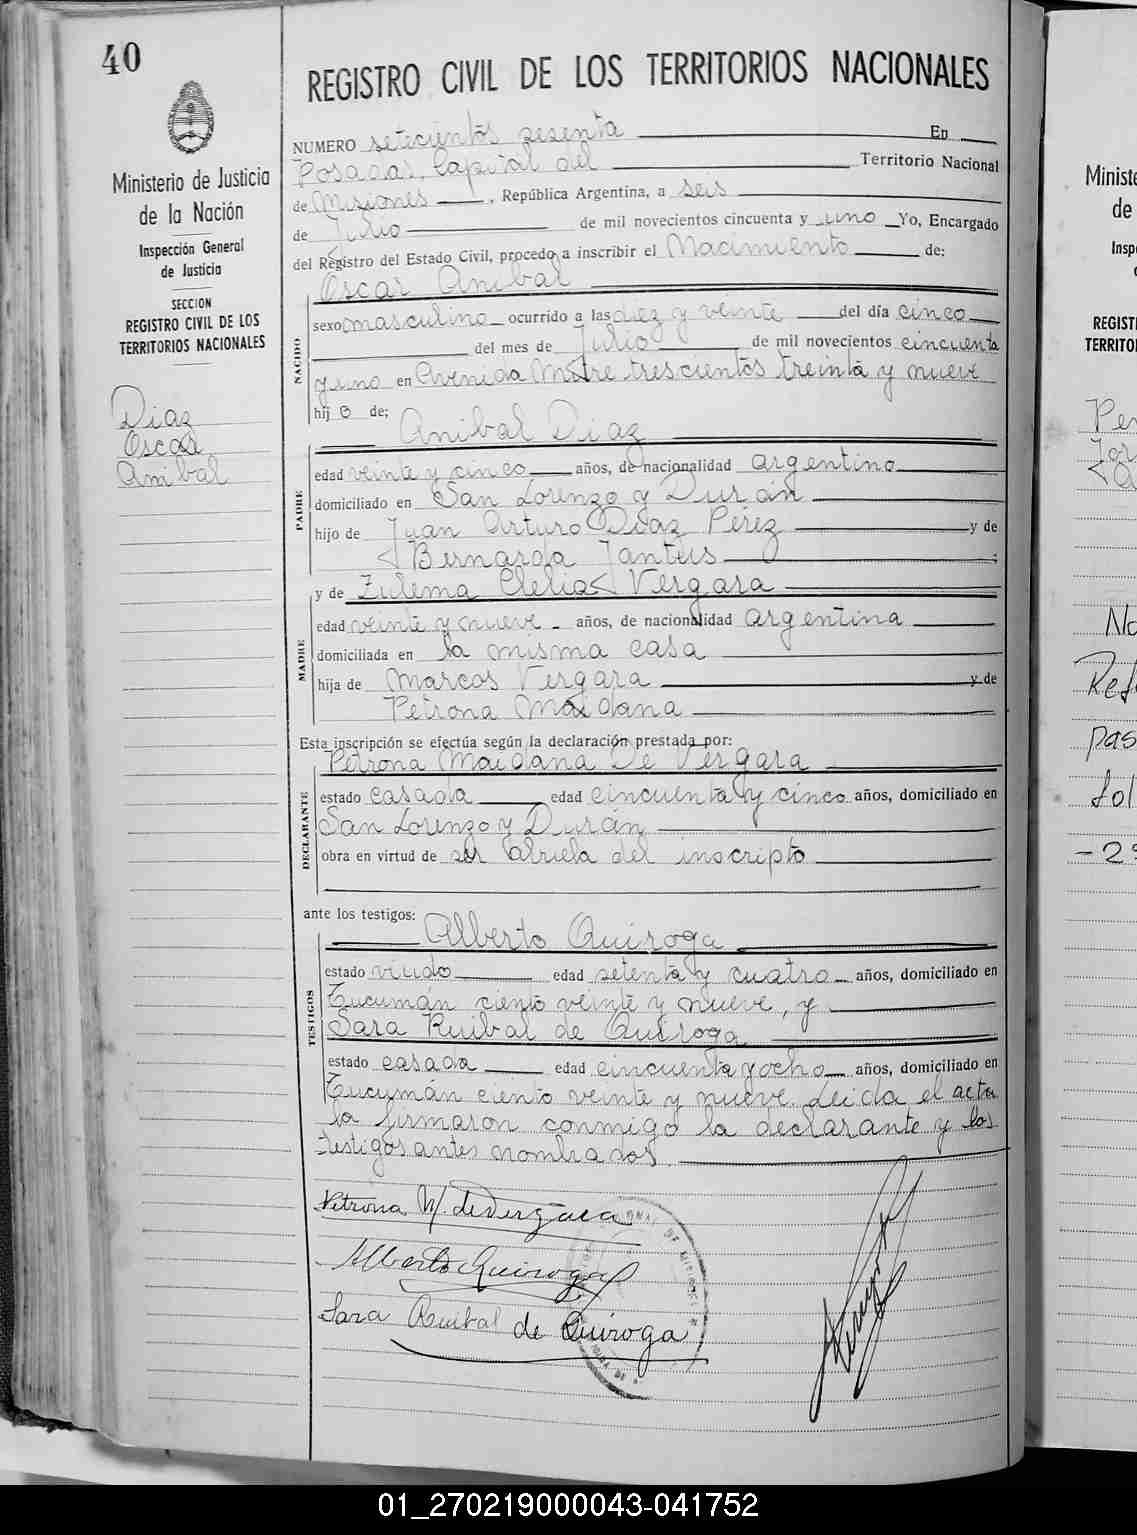 40
Ministerio de Justicia
de la Nación
Inspección General
de Justicia
SECCION
REGISTRO CIVIL DE LOS
TERRITORIOS NACIONALES
Diaz
Oscar
Anibal
REGISTRO CIVIL DE LOS TERRITORIOS NACIONALES
NUMERO setecientos sesenta En
Posadas, Capital del Territorio Nacional
de Misiones, República Argentina, a seis
de Julio de mil novecientos cincuenta y uno Yo, Encargado
del Registro del Estado Civil, procedo a inscribir el Nacimiento de:
Oscar Anibal
NACIDO
sexo masculino ocurrido a las diez y veinte del día cinco
del mes de Julio de mil novecientos cincuenta
y uno en Avenida Mitre trescientos treinta y nueve
hij o de;
Anibal Diaz
PADRE
edad veinte y cinco años, de nacionalidad argentino
domiciliado en San Lorenzo y Durán
hijo de Juan Arturo Diaz Pérez y de
Bernarda ;
y de Zulema Clelia Vergara
MADRE
edad veinte y nueve años, de nacionalidad argentina
domiciliada en la misma casa
hija de Marcos Vergara y de
Petrona Maidana
Esta inscripción se efectúa según la declaración prestada por:
Petrona Maidana De Vergara
DECLARANTE
estado casada edad cincuenta y cinco años, domiciliado en
San Lorenzo y Durán
obra en virtud de ser abuela del inscripto
ante los testigos:
Alberto Quiroga
TESTIGOS
estado viudo edad setenta y cuatro años, domiciliado en
Tucumán ciento veinte y nueve, y
Sara Ruibal de Quiroga
estado casada edad cincuenta y ocho años, domiciliado en
Tucumán ciento veinte y nueve. Leida el acta
la firmaron conmigo la declarante y los
testigos antes nombrados.
Petrona M. de Vergara
Alberto Quiroga
Sara Ruibal de Quiroga
01_270219000043-041752